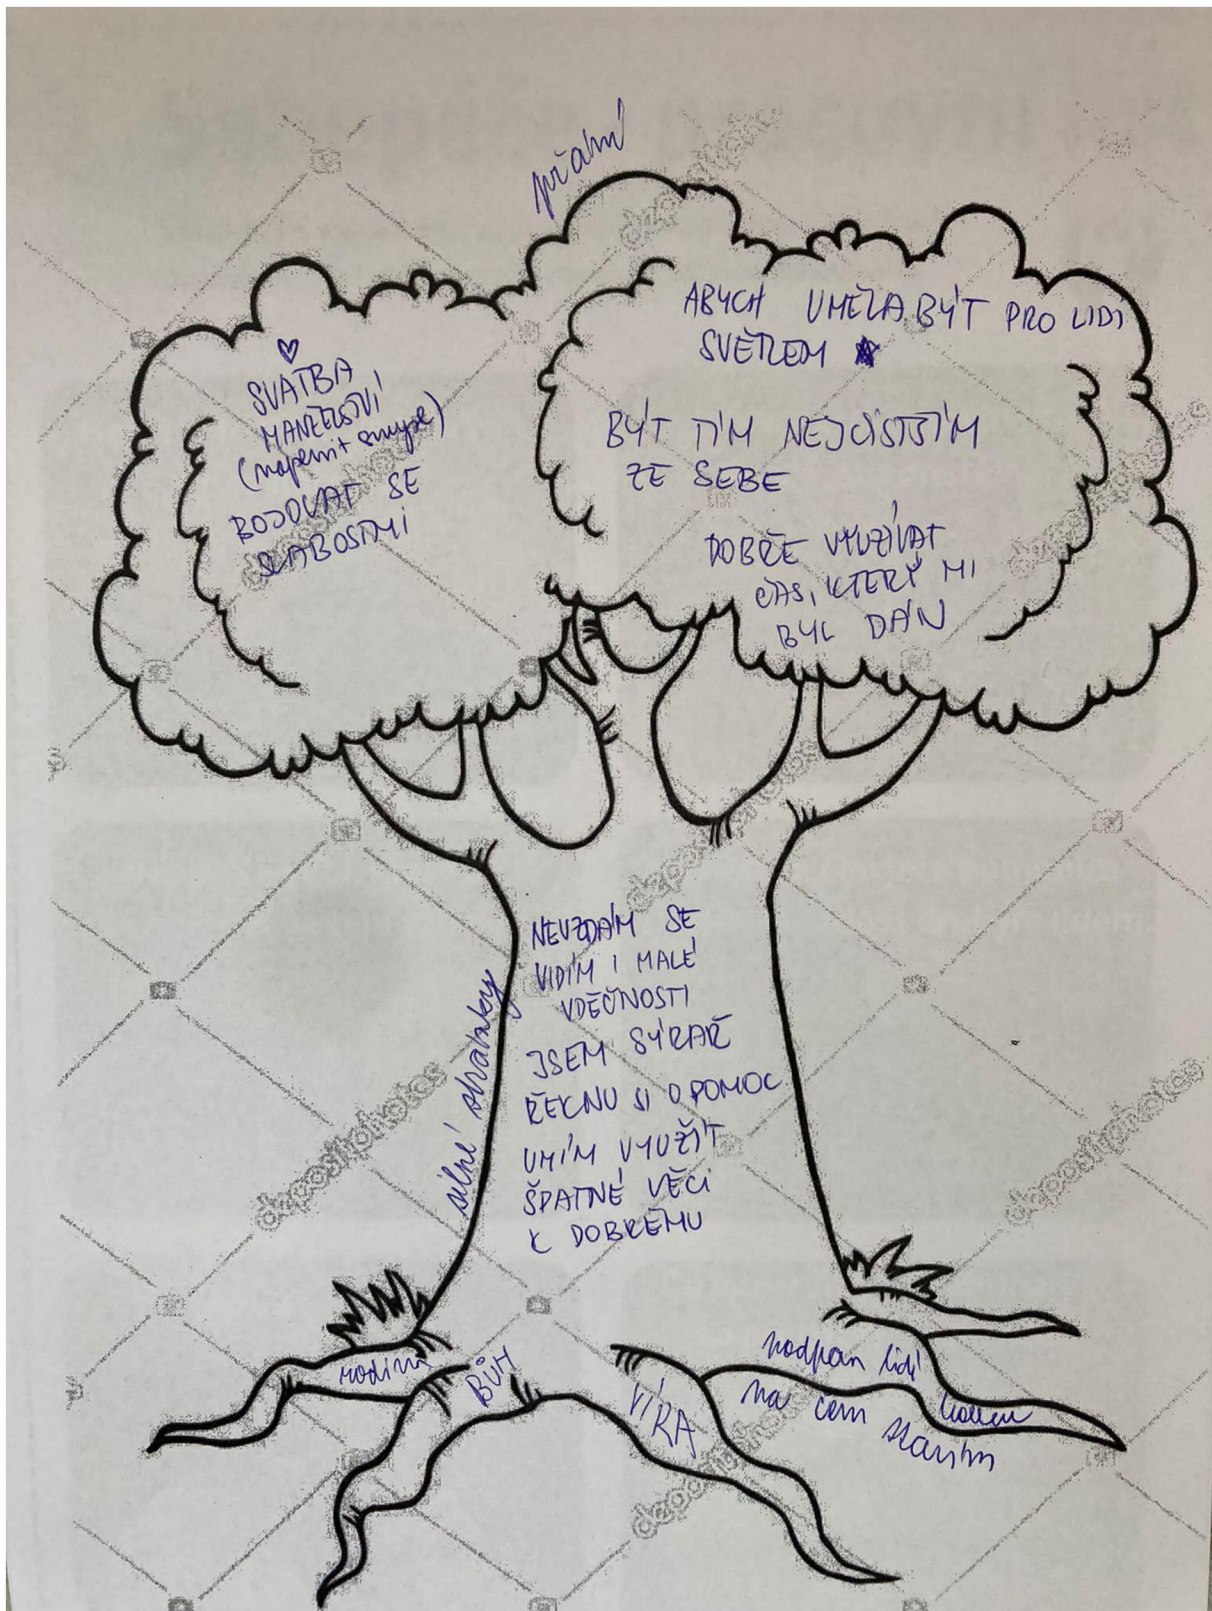 přání
♡
SVATBA
MANŽELSTVÍ
(naplnit smysl)
BOJOVAT SE
SLABOSTMI
ABYCH UMĚLA BÝT PRO LIDI
SVĚTLEM
BÝT TÍM NEJČISTŠÍM
ZE SEBE
DOBŘE VYUŽÍVAT
ČAS, KTERÝ MI
BYL DÁN
silné stránky
NEVZDÁM SE
VIDÍM I MALÉ
VDĚČNOSTI
JSEM SÝRAŘ
ŘEKNU SI O POMOC
UMÍM VYUŽÍT
ŠPATNÉ VĚCI
K DOBRÉMU
rodina
BŮH
VÍRA
lidí
na čem
stavím
depositphotos
depositphotos
depositphotos
depositphotos
depositphotos